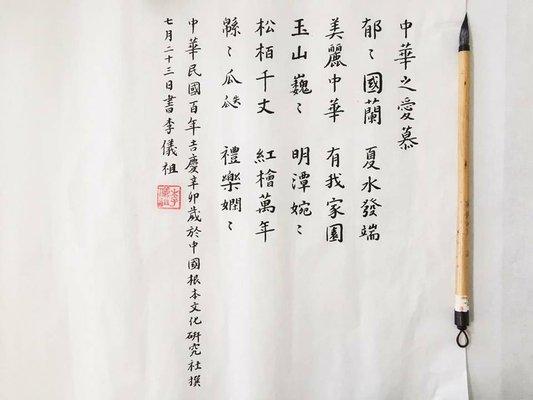 中華之愛慕
郁〻國蘭　夏水發端
美麗中華　有我家園
玉山巍〻　明潭婉〻
松栢千丈　紅檜萬年
緜〻瓜瓞　禮樂嫻〻
中華民國百年吉慶辛卯歲於中國根本文化研究社撰
七月二十三日書李儀祖